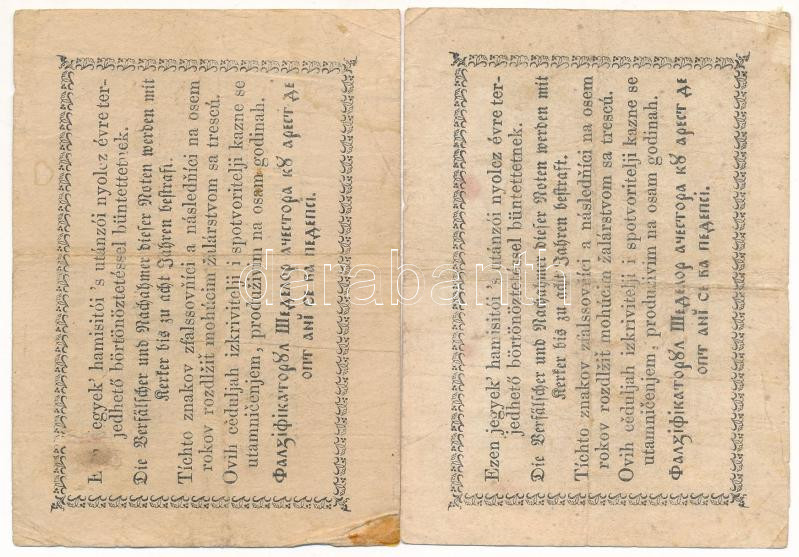 Ezen jegyek' hamisitói 's utánzói nyolcz évre ter-
jedhető börtönöztetéssel büntettetnek.
Die Verfälscher und Nachahmer dieser Noten werden mit
Kerker bis zu acht Jahren bestraft.
Tíchto znakov zfalssovňíci a následňíci na osem
rokov rozdlžiť mohúcim žalárstvom sa trescú.
Ovih cěduljah izkrivitelji i spotvoritelji kazne se
utamničenjem, produživim na osam godinah.
Фалзіфікаторул Шеделор ачестора кȣ арест де
опт анй се ва педепсі.
jegyek' hamisitói 's utánzói nyolcz évre ter-
jedhető börtönöztetéssel büntettetnek.
Die Verfälscher und Nachahmer dieser Noten werden mit
Kerker bis zu acht Jahren bestraft.
Tíchto znakov zfalssovňíci a následňíci na osem
rokov rozdlžiť mohúcim žalárstvom sa trescú.
Ovih cěduljah izkrivitelji i spotvoritelji kazne se
utamničenjem, produživim na osam godinah.
Фалзіфікаторул Шеделор ачестора кȣ арест де
опт анй се ва педепсі.
darabanth